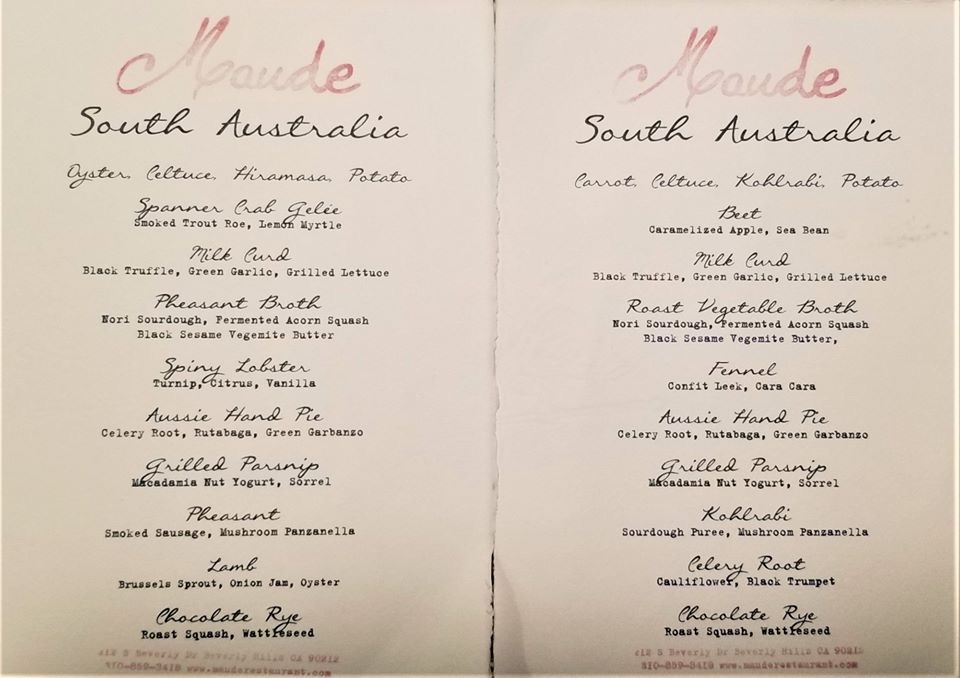 Maude
South Australia
Oyster, Celtuce, Hiramasa, Potato
Spanner Crab Gelée
Smoked Trout Roe, Lemon Myrtle
Milk Curd
Black Truffle, Green Garlic, Grilled Lettuce
Pheasant Broth
Nori Sourdough, Fermented Acorn Squash
Black Sesame Vegemite Butter
Spiny Lobster
Turnip, Citrus, Vanilla
Aussie Hand Pie
Celery Root, Rutabaga, Green Garbanzo
Grilled Parsnip
Macadamia Nut Yogurt, Sorrel
Pheasant
Smoked Sausage, Mushroom Panzanella
Lamb
Brussels Sprout, Onion Jam, Oyster
Chocolate Rye
Roast Squash, Wattleseed
212 S Beverly Dr Beverly Hills CA 90212
310-859-3418 www.mauderestaurant.com
Maude
South Australia
Carrot, Celtuce, Kohlrabi, Potato
Beet
Caramelized Apple, Sea Bean
Milk Curd
Black Truffle, Green Garlic, Grilled Lettuce
Roast Vegetable Broth
Nori Sourdough, Fermented Acorn Squash
Black Sesame Vegemite Butter,
Fennel
Confit Leek, Cara Cara
Aussie Hand Pie
Celery Root, Rutabaga, Green Garbanzo
Grilled Parsnip
Macadamia Nut Yogurt, Sorrel
Kohlrabi
Sourdough Puree, Mushroom Panzanella
Celery Root
Cauliflower, Black Trumpet
Chocolate Rye
Roast Squash, Wattleseed
212 S Beverly Dr Beverly Hills CA 90212
310-859-3418 www.mauderestaurant.com